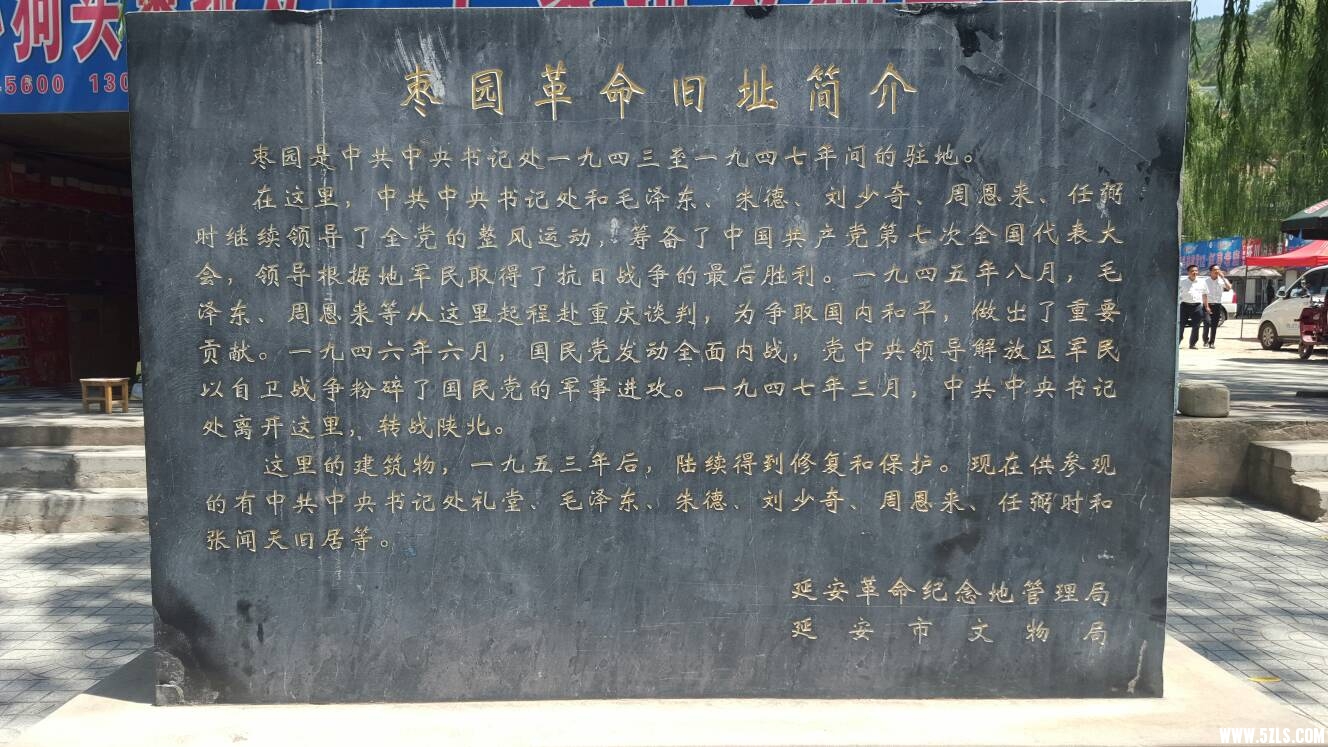 枣园革命旧址简介
枣园是中共中央书记处一九四三至一九四七年间的驻地。
在这里，中共中央书记处和毛泽东、朱德、刘少奇、周恩来、任弼
时继续领导了全党的整风运动，筹备了中国共产党第七次全国代表大
会，领导根据地军民取得了抗日战争的最后胜利。一九四五年八月，毛
泽东、周恩来等从这里起程赴重庆谈判，为争取国内和平，做出了重要
贡献。一九四六年六月，国民党发动全面内战，党中央领导解放区军民
以自卫战争粉碎了国民党的军事进攻。一九四七年三月，中共中央书记
处离开这里，转战陕北。
这里的建筑物，一九五三年后，陆续得到修复和保护。现在供参观
的有中共中央书记处礼堂、毛泽东、朱德、刘少奇、周恩来、任弼时和
张闻天旧居等。
延安革命纪念地管理局
延安市文物局
5600 130
WWW.5ZLS.COM